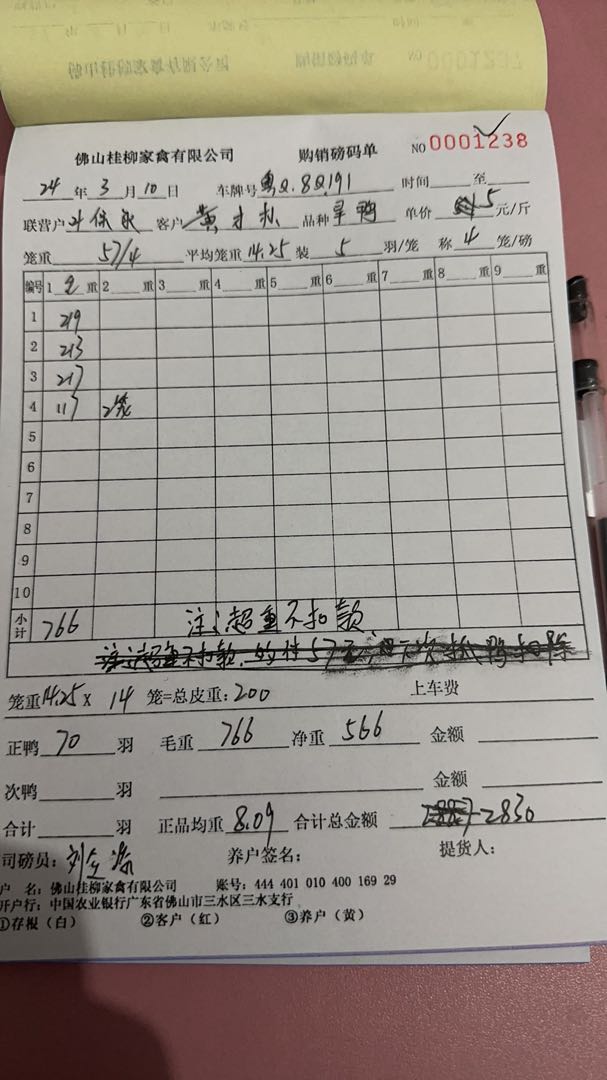 佛山桂柳家禽有限公司 购销磅码单 NO 0001238
24 年 3 月 10 日 车牌号 粤Q.8Q191 时间 至
联营户 客户 品种 鸭 单价 5 元/斤
笼重 57/4 平均笼重 14.25 装 5 羽/笼 称 4 笼/磅
编号 1 毛 重 2 重 3 重 4 重 5 重 6 重 7 重 8 重 9 重
1 219
2 213
3 217
4 117 2笼
5
6
7
8
9
10
小计 766 注：超重不扣款
注：超重不扣款
笼重 14.25 x 14 笼=总皮重: 200 上车费
正鸭 70 羽 毛重 766 净重 566 金额
次鸭 羽 金额
合计 羽 正品均重 8.09 合计总金额 2830
司磅员: 养户签名: 提货人:
户 名: 佛山桂柳家禽有限公司 账号: 444 401 010 400 169 29
开户行: 中国农业银行广东省佛山市三水区三水支行
①存根（白） ②客户（红） ③养户（黄）